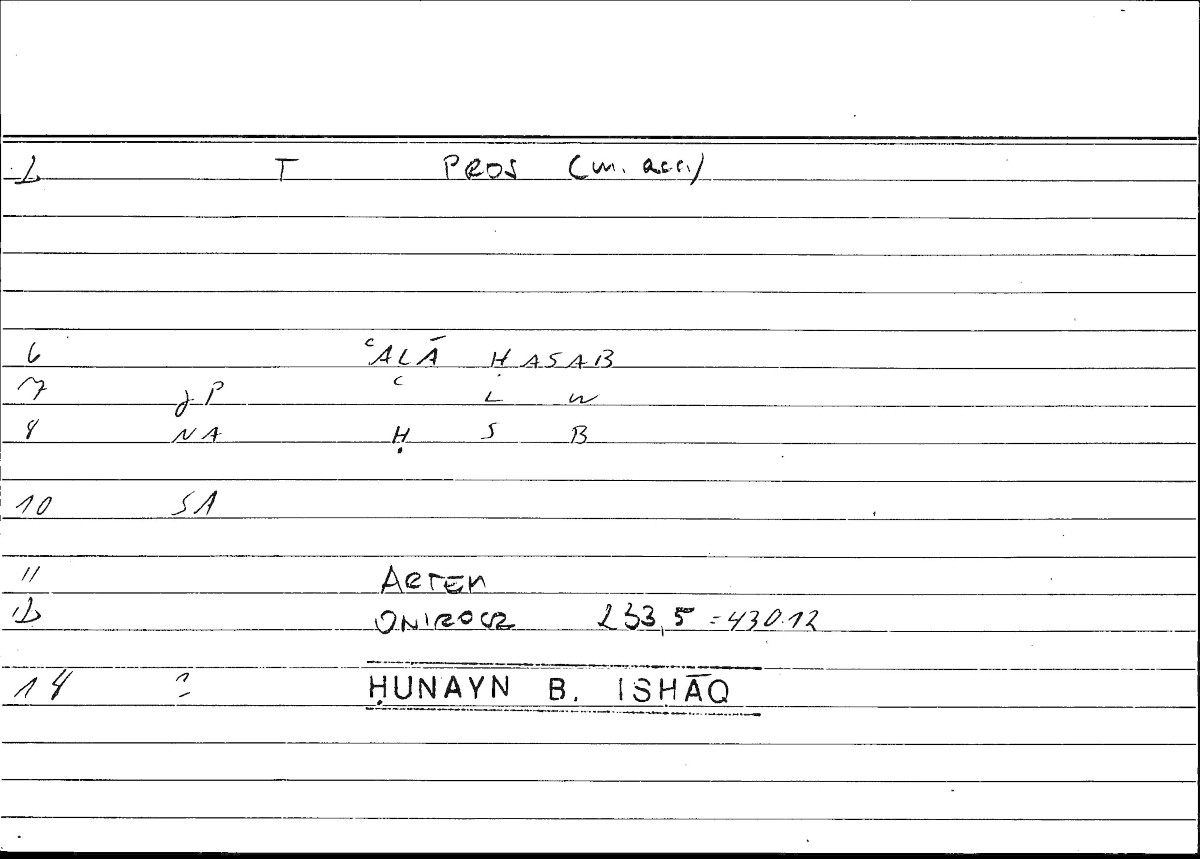 2 T PROS (m. acc.)
6 ʿALĀ ḤASAB
7 gP ʿ L W
8 NA Ḥ S B
10 SA
11 ARTEM
12 ONIROCR 233,5 = 430.12
14 ? ḤUNAYN B. ISḤĀQ